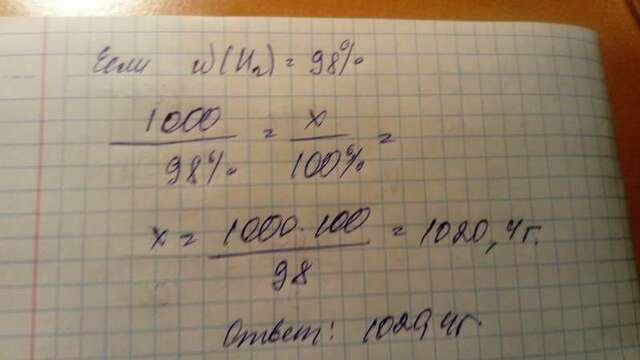 Если w(H₂) = 98%
1000/98% = x/100% =
x = 1000·100/98 = 1020,4г.
Ответ: 1020,4г.